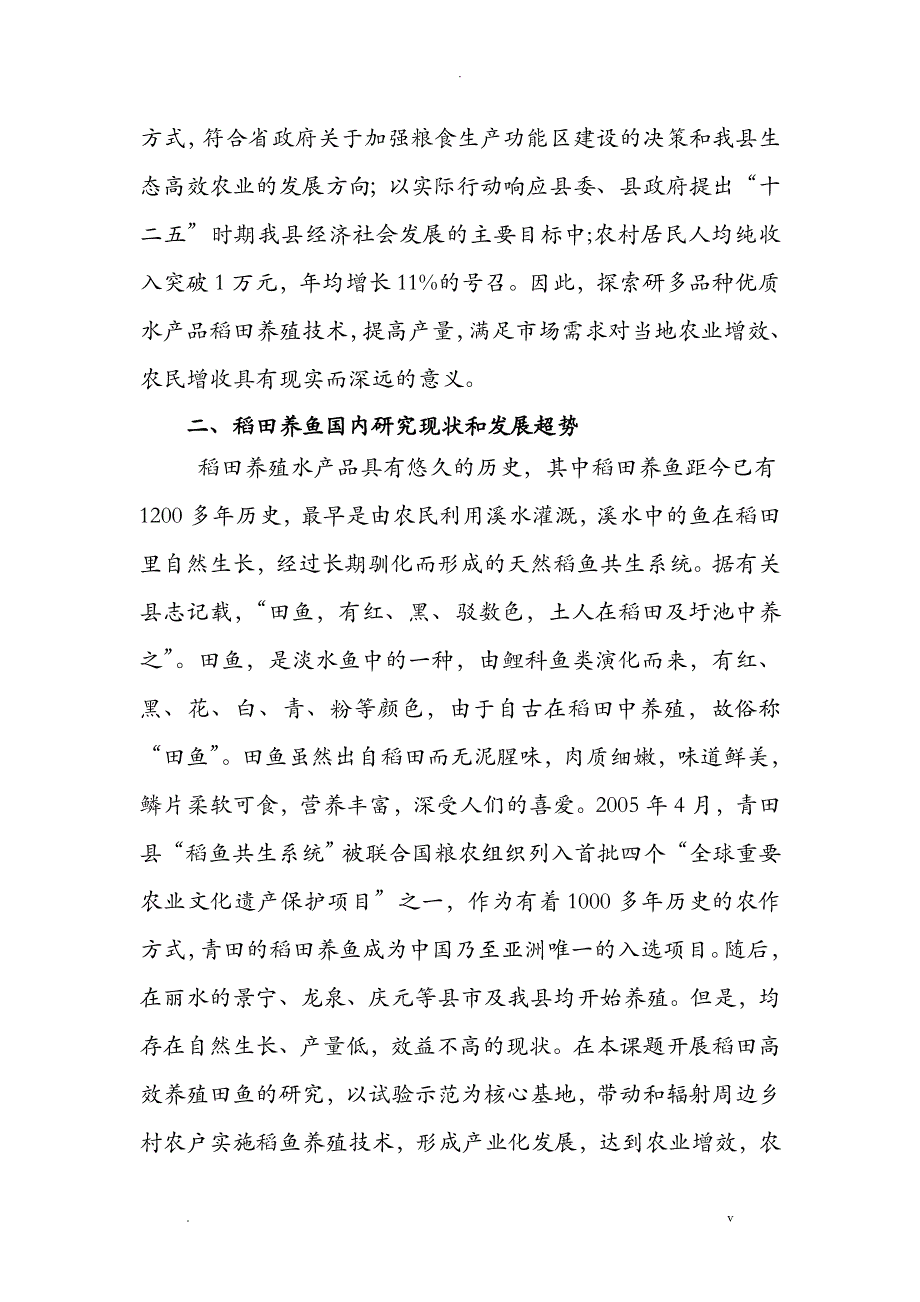 .
方式，符合省政府关于加强粮食生产功能区建设的决策和我县生
态高效农业的发展方向；以实际行动响应县委、县政府提出“十
二五”时期我县经济社会发展的主要目标中;农村居民人均纯收
入突破1万元，年均增长11%的号召。因此，探索研多品种优质
水产品稻田养殖技术，提高产量，满足市场需求对当地农业增效、
农民增收具有现实而深远的意义。
二、稻田养鱼国内研究现状和发展超势
稻田养殖水产品具有悠久的历史，其中稻田养鱼距今已有
1200多年历史，最早是由农民利用溪水灌溉，溪水中的鱼在稻田
里自然生长，经过长期驯化而形成的天然稻鱼共生系统。据有关
县志记载，“田鱼，有红、黑、驳数色，土人在稻田及圩池中养
之”。田鱼，是淡水鱼中的一种，由鲤科鱼类演化而来，有红、
黑、花、白、青、粉等颜色，由于自古在稻田中养殖，故俗称
“田鱼”。田鱼虽然出自稻田而无泥腥味，肉质细嫩，味道鲜美，
鳞片柔软可食，营养丰富，深受人们的喜爱。2005年4月，青田
县“稻鱼共生系统”被联合国粮农组织列入首批四个“全球重要
农业文化遗产保护项目”之一，作为有着1000多年历史的农作
方式，青田的稻田养鱼成为中国乃至亚洲唯一的入选项目。随后，
在丽水的景宁、龙泉、庆元等县市及我县均开始养殖。但是，均
存在自然生长、产量低，效益不高的现状。在本课题开展稻田高
效养殖田鱼的研究，以试验示范为核心基地，带动和辐射周边乡
村农户实施稻鱼养殖技术，形成产业化发展，达到农业增效，农
. v